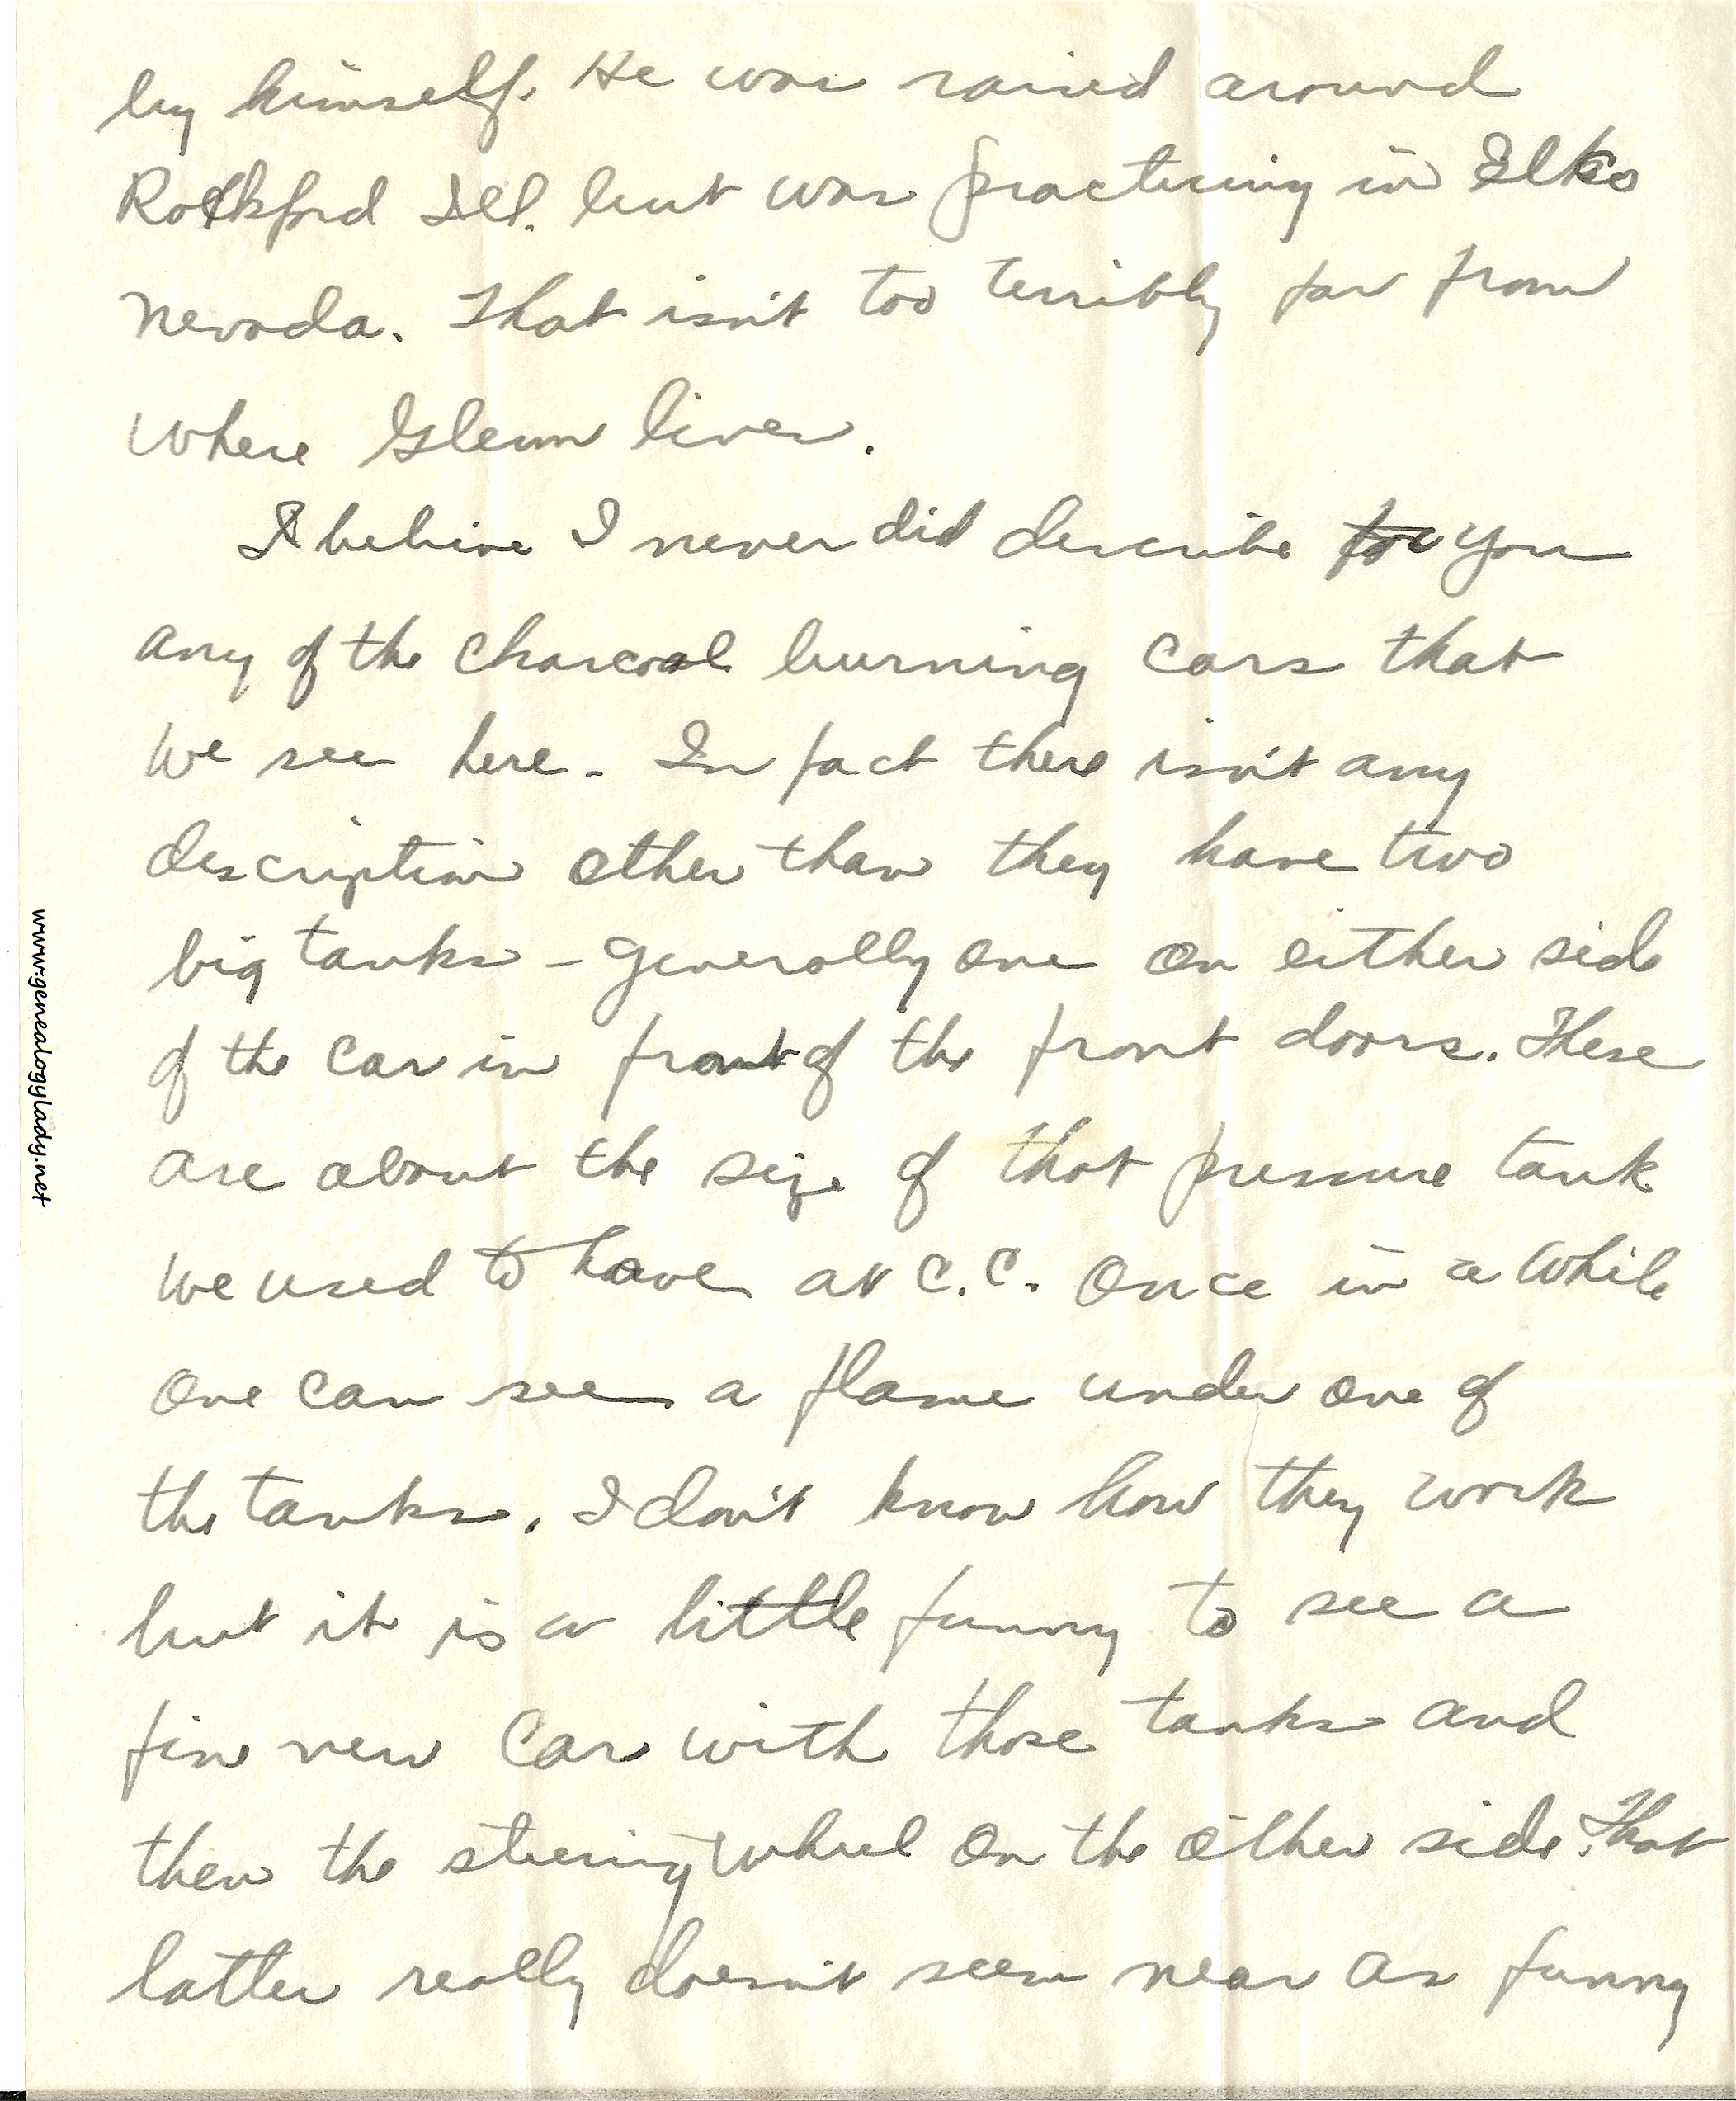 by himself. He was raised around
Rockford Ill. but was practicing in Elko
Nevada. That isn't too terribly far from
where Glenn lives.
I beleive I never did describe for you
any of the charcoal burning cars that
we see here. In fact there isn't any
description other than they have two
big tanks - generally one on either side
of the car in front of the front doors. These
are about the size of that pressure tank
we used to have at C.C. Once in a while
one can see a flame under one of
the tanks. I don't know how they work
but it is a little funny to see a
fine new car with those tanks and
then the steering wheel on the other side. That
latter really doesn't seem near as funny
www.genealogylady.net